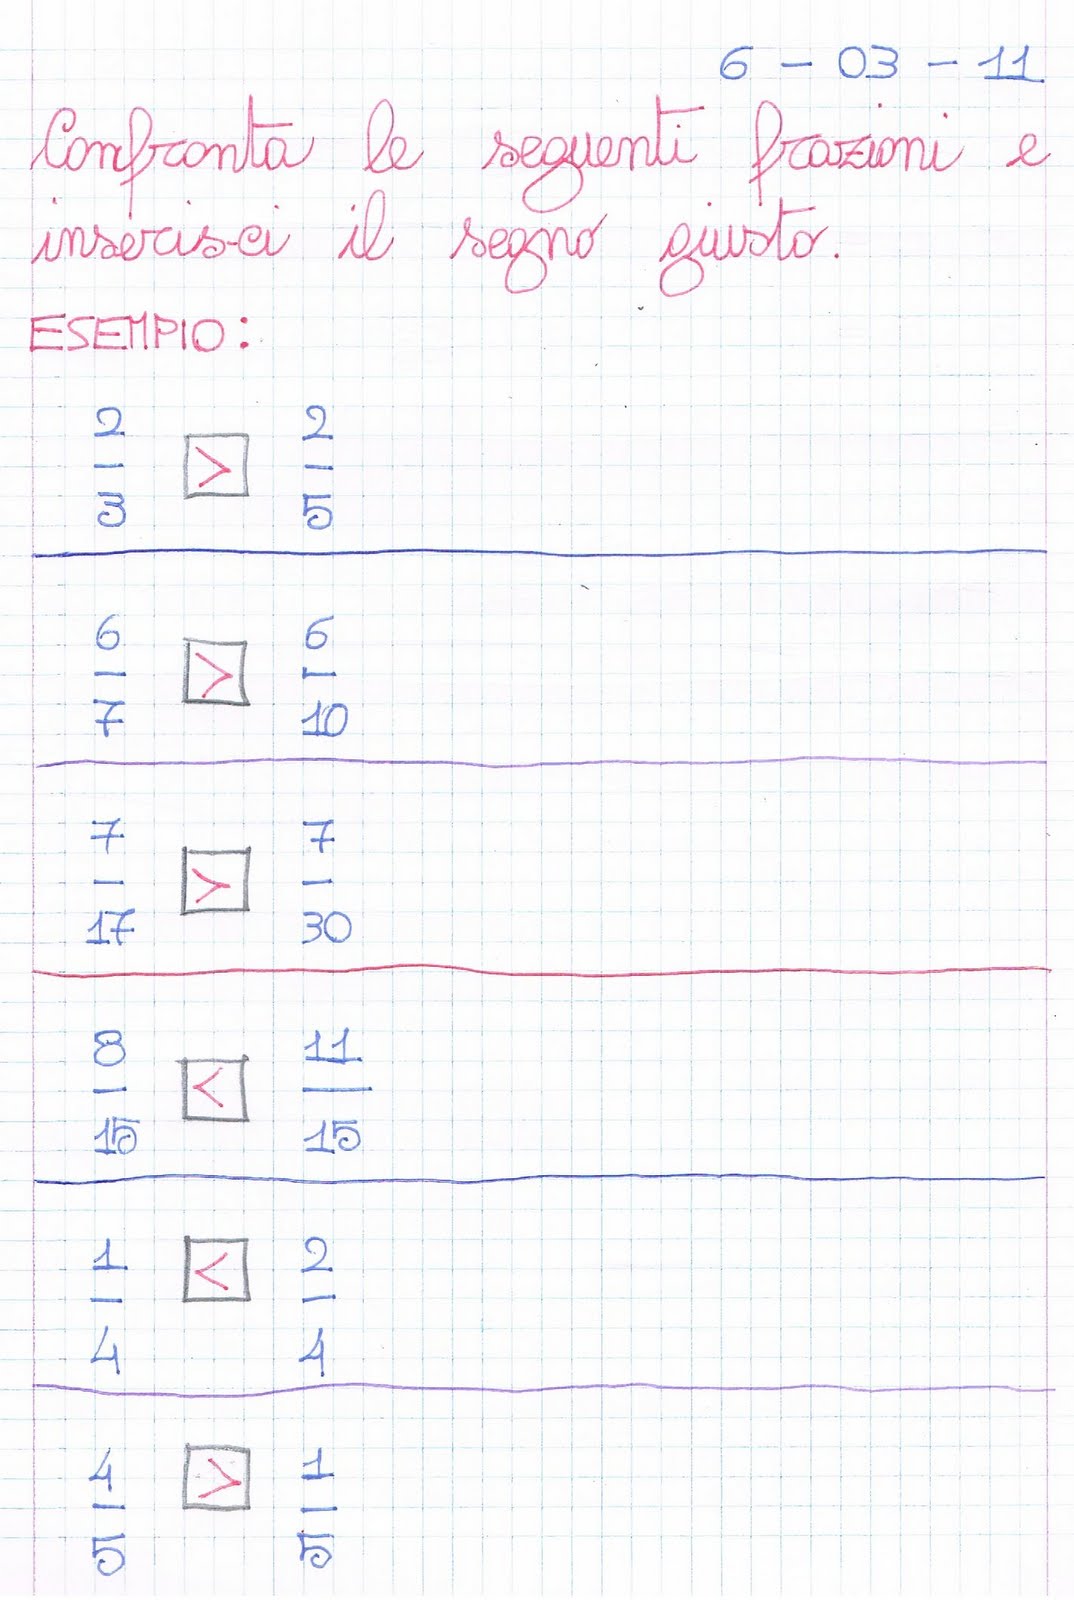 6 - 03 - 11
Confronta le seguenti frazioni e
inserisci il segno giusto.
ESEMPIO:
2/3 > 2/5
6/7 > 6/10
7/17 > 7/30
8/15 < 11/15
1/4 < 2/4
4/5 > 1/5